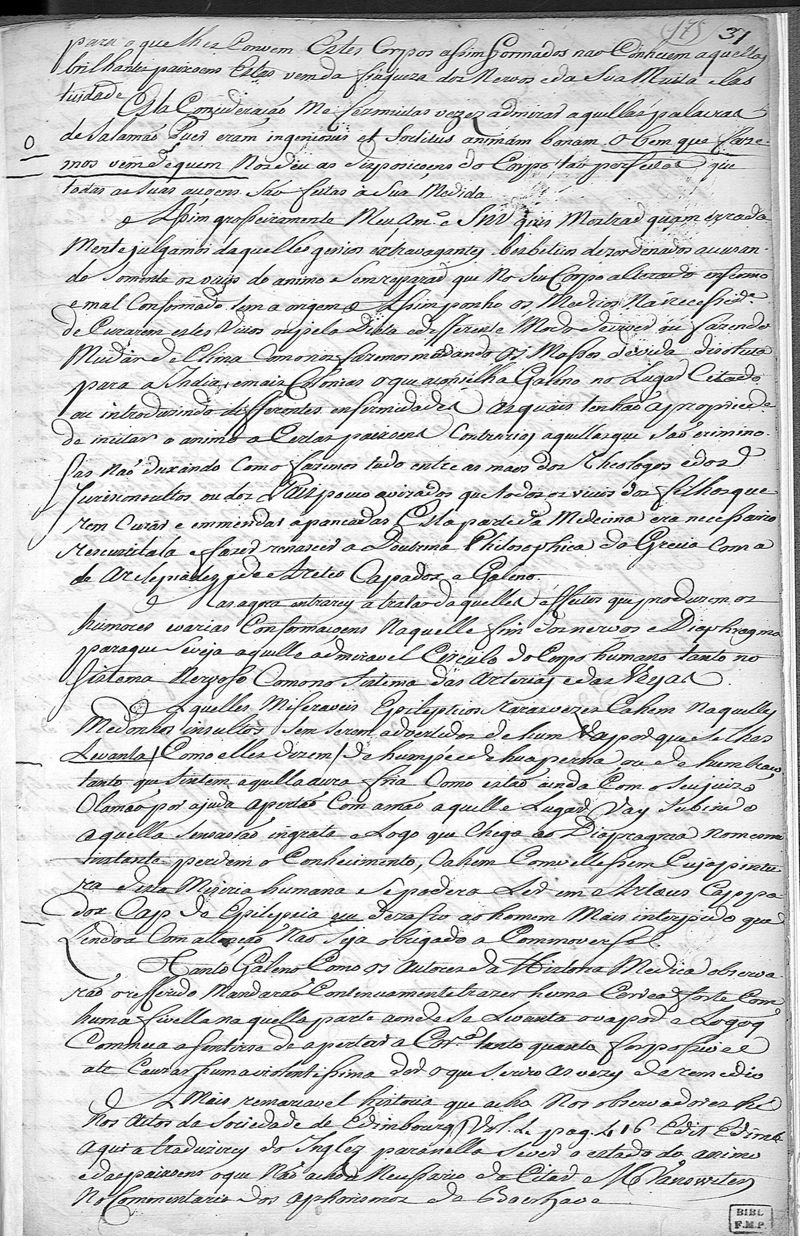 (175) 31
para o que lhes Convem Estes Corpos assim formados nao Conhecem aquellas
brilhantes paixoens Estas vem da fraqueza dos Nervos e da Sua Muita elas
ticidade
Esta Consideraçaõ Me fes muitas vezes admirar aquellas palavras
de Salamaõ Puer eram ingeniosus et Sortitus animam bonam. O bem que faze-
0
mos vem de quem Nos deu as dispozicoens do Corpo taõ perfeitas que
todas as Suas acçoens Saõ feitas à Sua Medida
Assim grosseiramente Meu Amº e Snr quis Mostrar quam errada
Mente julgamos daquelles genios extravagantes, desordenados accusan-
do Somente os vicios do animo e Sem reparar que No Seu Corpo alterado enfermo
e mal Conformado tem a origem e Assim ponho os Medicos Na necessidᵉ
de Curarem estes Vicios ou pela Dieta e differente Modo de viver ou fazendo
Mudar de Clima Como nós fazemos mandando Os Mossos de vida disoluta
para a India, e mais Colonias o que aconselha Galeno no Lugar Citado
ou introduzindo differentes enfermidades as quais tenhaõ a propriedᵉ
de incitar o animo a Certas paixoens Contrarias aquellas que Saõ crimino-
sas Naõ duxando Como fazemos tudo entre as maos dos Theologos e dos
Jurisconsultos ou dos Pais pouco avizados que todos os vicios dos filhos que
rem Curar e emmendar a pancadas Esta parte da Medicina era necessario
rescucitala e fazer renascer a Doutrina Philosophica da Grecia Com a
de Asclepiades, e de Areteo Capador e Galeno.
Mas agora entrarey a tratar daquelles effeitos que produzem os
humores e varias Conformacoens Naquelle fim dos nervos e Diaphragma
para que Se veja aquelle admiravel Circulo do Corpo humano tanto no
Sistema Nervoso Como no Sistema das Arterias e das Veyas
Aquelles Miseraveis Epilepticos raras vezes Cahem Naquelles
Medonhos insultos Sem serem advertidos de hum Vapor que Se lhes
Levanta / Como elles dizem / de hum pé e de hua perna ou de hum braço
tanto que Sintem aquella aura fria Como estaõ ainda Com o Seu juizo
Clamaõ por ajuda apertaõ Com a maõ aquelle Lugar Vay Subindo
aquella Sensasaõ ingrata e Logo que Chega ao Diapragma no mesmo
instante perdem o Conhecimento, Cahem Cuja pintu
ra desta Miseria humana e Se poderá Ler em Aretæus Cappa
dox Cap De Epilepcia eu dezafio ao homem Mais intrepido que
Lendoa Com attençaõ Naõ Seja obrigado a Commoverse
Tanto Galeno Como os Autores da Historia Medica observa
raõ o refferido Mandaraõ Continuamente trazer huma Correa forte Com
huma fivella naquella parte aonde Se Levanta o vapor e Logo q
Commeça a Sentirse de apertar a Corrᵃ tanto quanto for possivel
até Cauzar huma violentissima dor o que Servio as vezes de remedio
A Mais remarcavel historia que acho Nos observadores hé
Nos Actos da Sociedade de Edimbourg Vol. 4 pag. 416 Edit Edimb.
aqui a traduzirey do Inglez para nella Se ver o estado do animo
e das paixoens o que Naõ acho Necessario de Citar e M. Vanswiten
No Commentario dos aphorismos de Boerhave
BIBL
F.M.P.